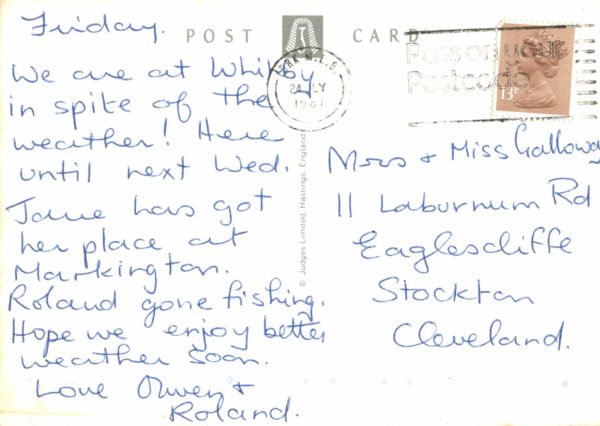 POST CARD
Friday.
We are at Whitby
in spite of the
weather! Here
until next Wed.
Jane has got
her place at
Markington.
Roland gone fishing.
Hope we enjoy better
weather soon.
Love Olwen &
Roland.
© Judges Limited, Hastings, England
1987
Pass on your
Postcode
13P
Mrs & Miss Galloway
11 Laburnum Rd
Eaglescliffe
Stockton
Cleveland.